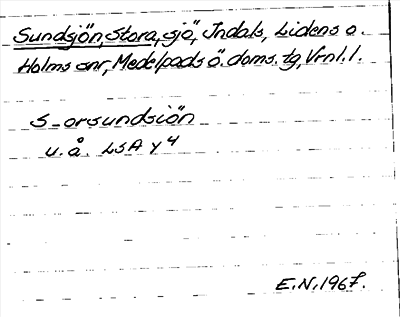 Sundsjön, Stora, sjö, Indals, Lidens o.
Holms snr, Medelpads ö. doms. tg, Vrnl. l.
S-orsundsiön
u. å. LSA Y 4
E.N. 1967.